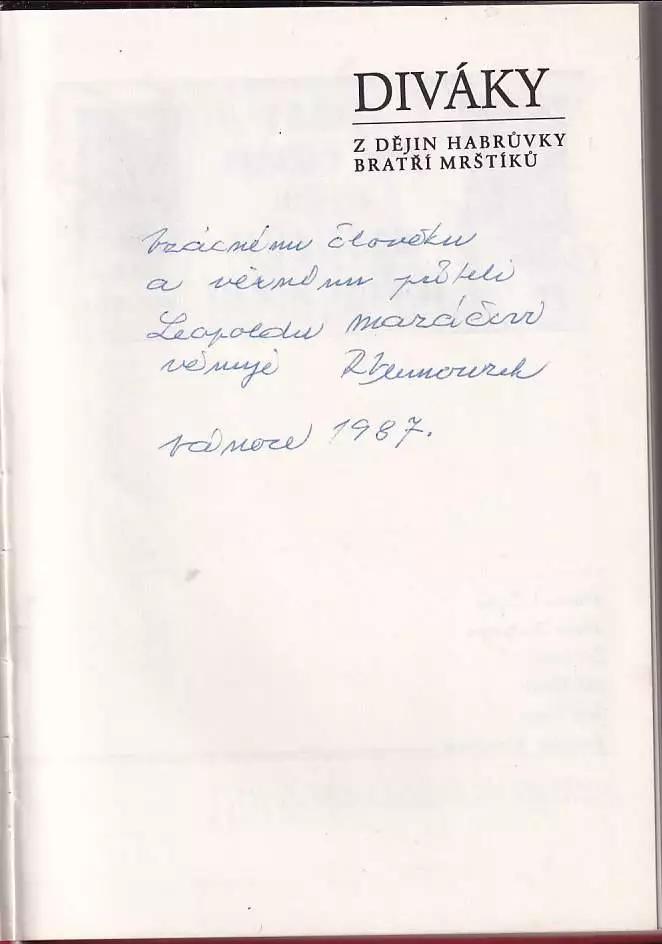 DIVÁKY
Z DĚJIN HABRŮVKY
BRATŘÍ MRŠTÍKŮ
vzácnému člověku
a věrnému příteli
Leopoldu Mazáčovi
věnuje
vánoce 1987.